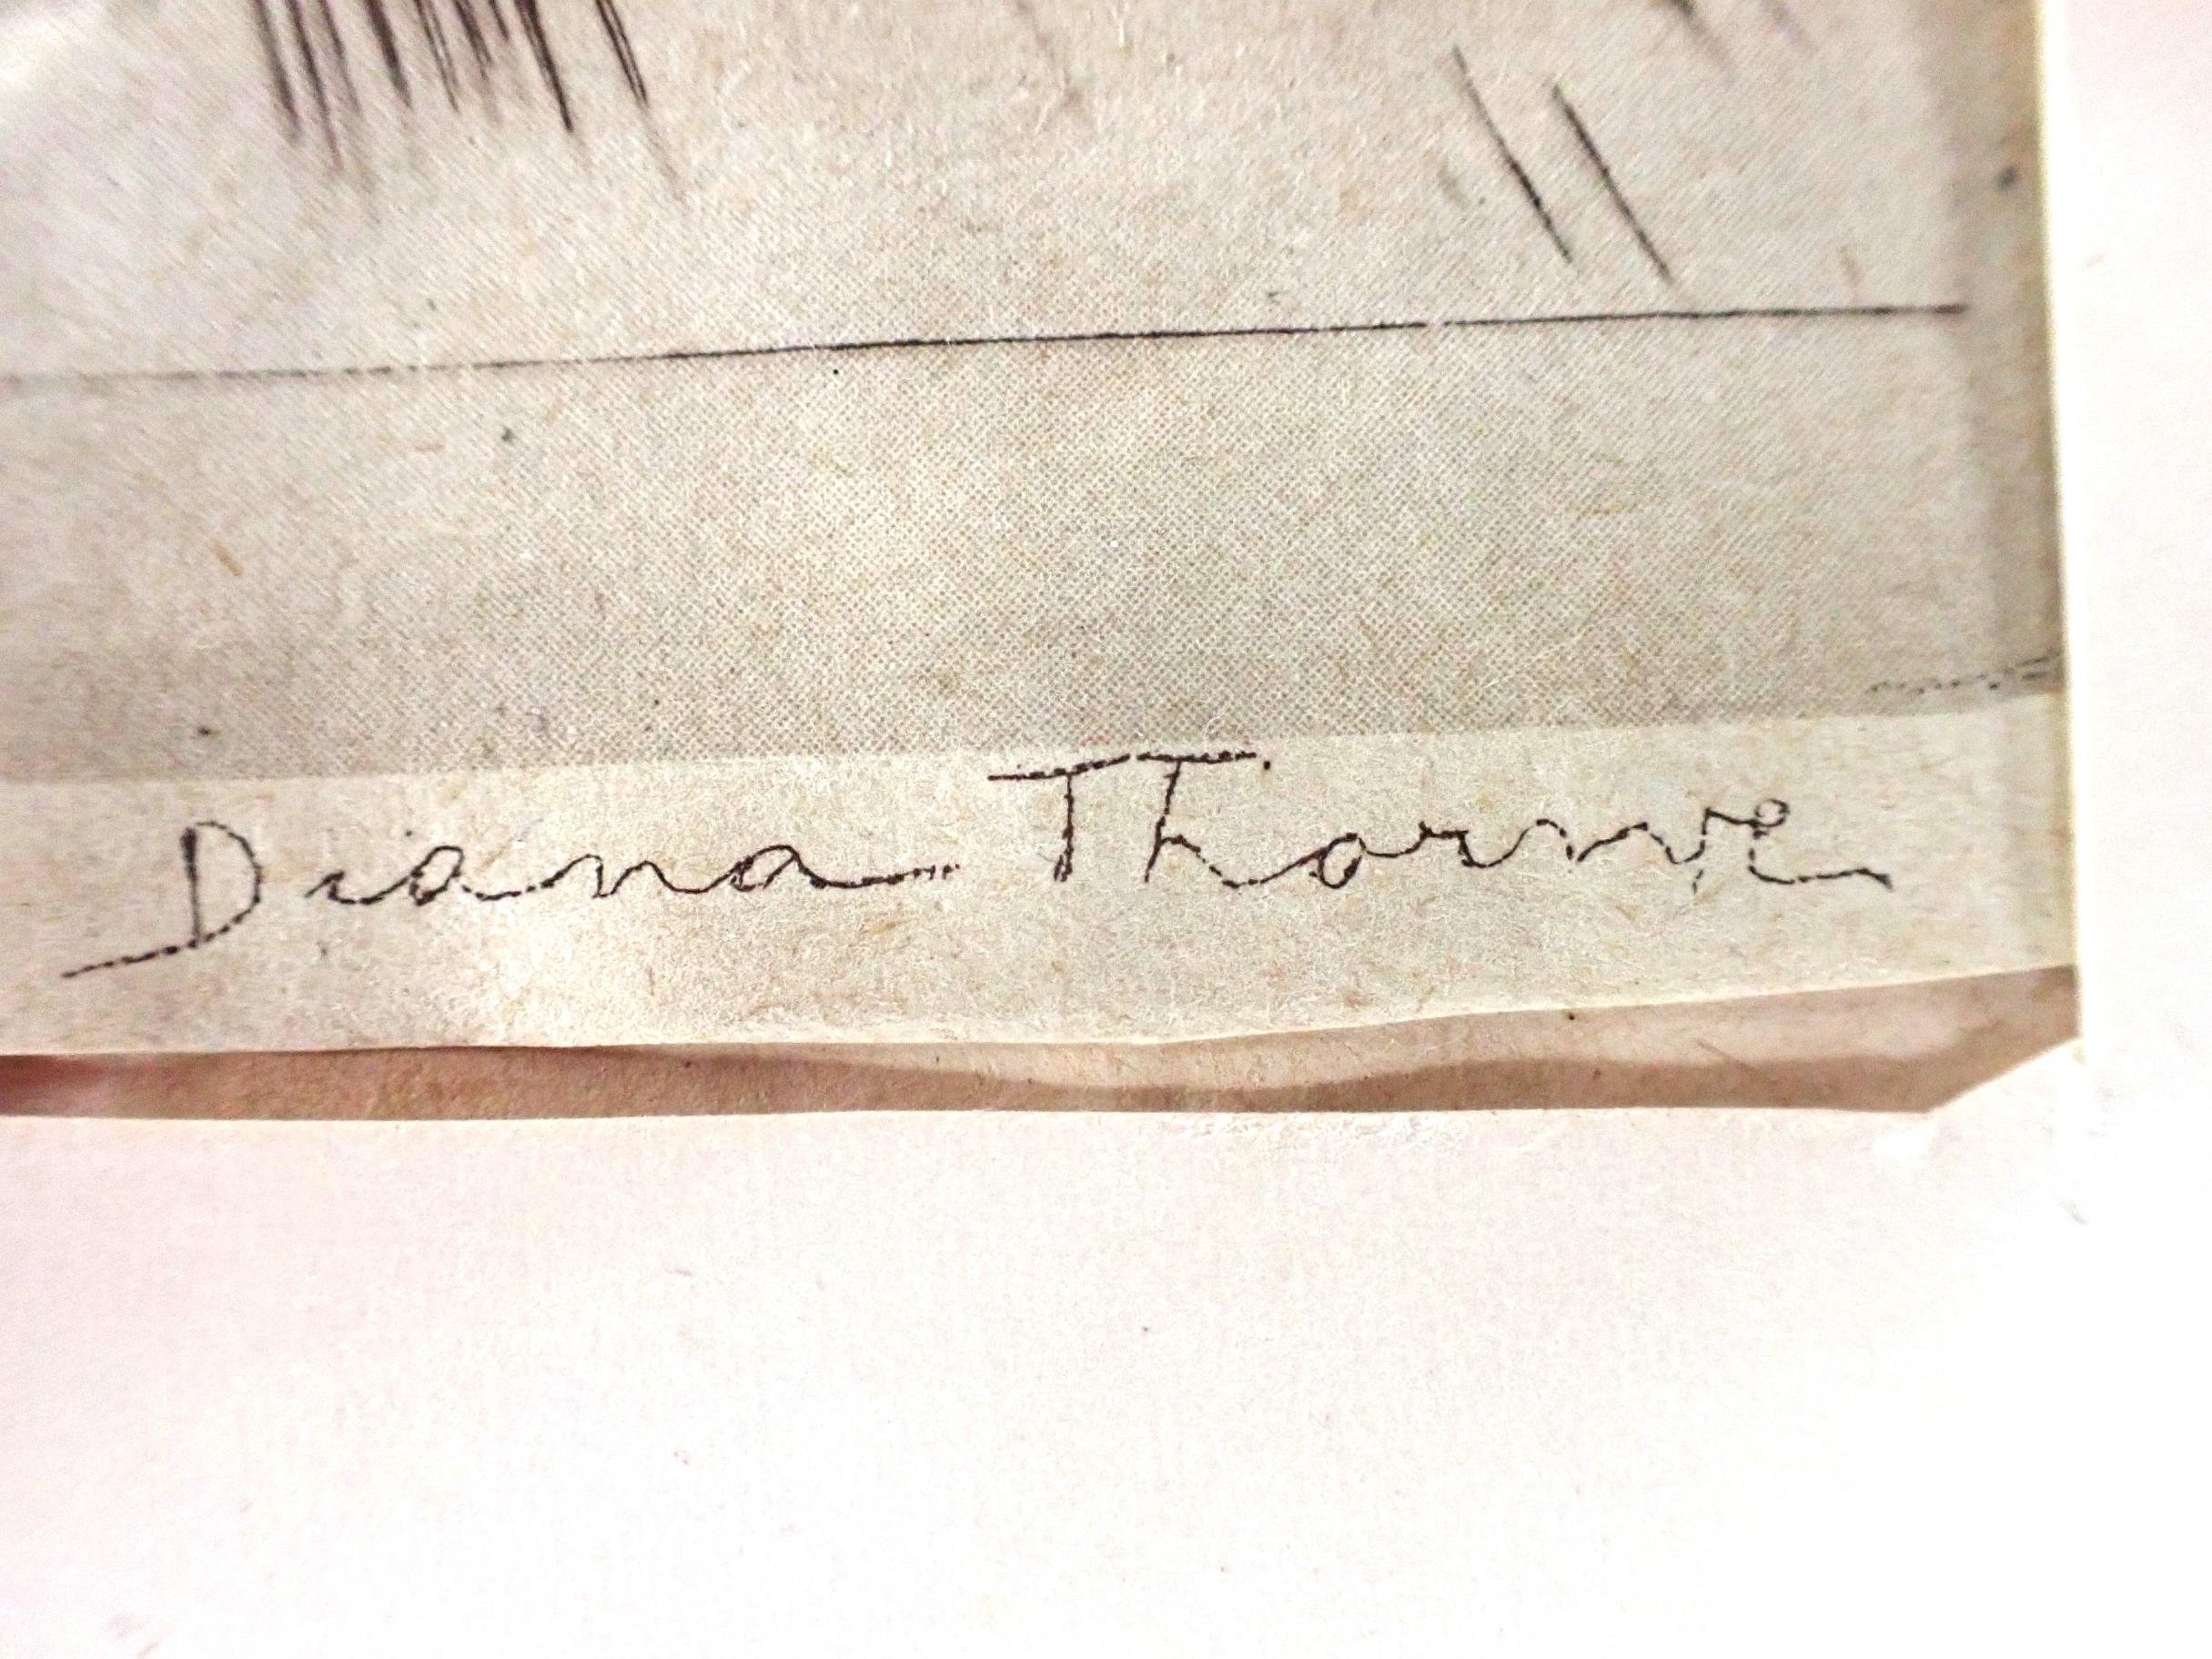 Diana Thorne